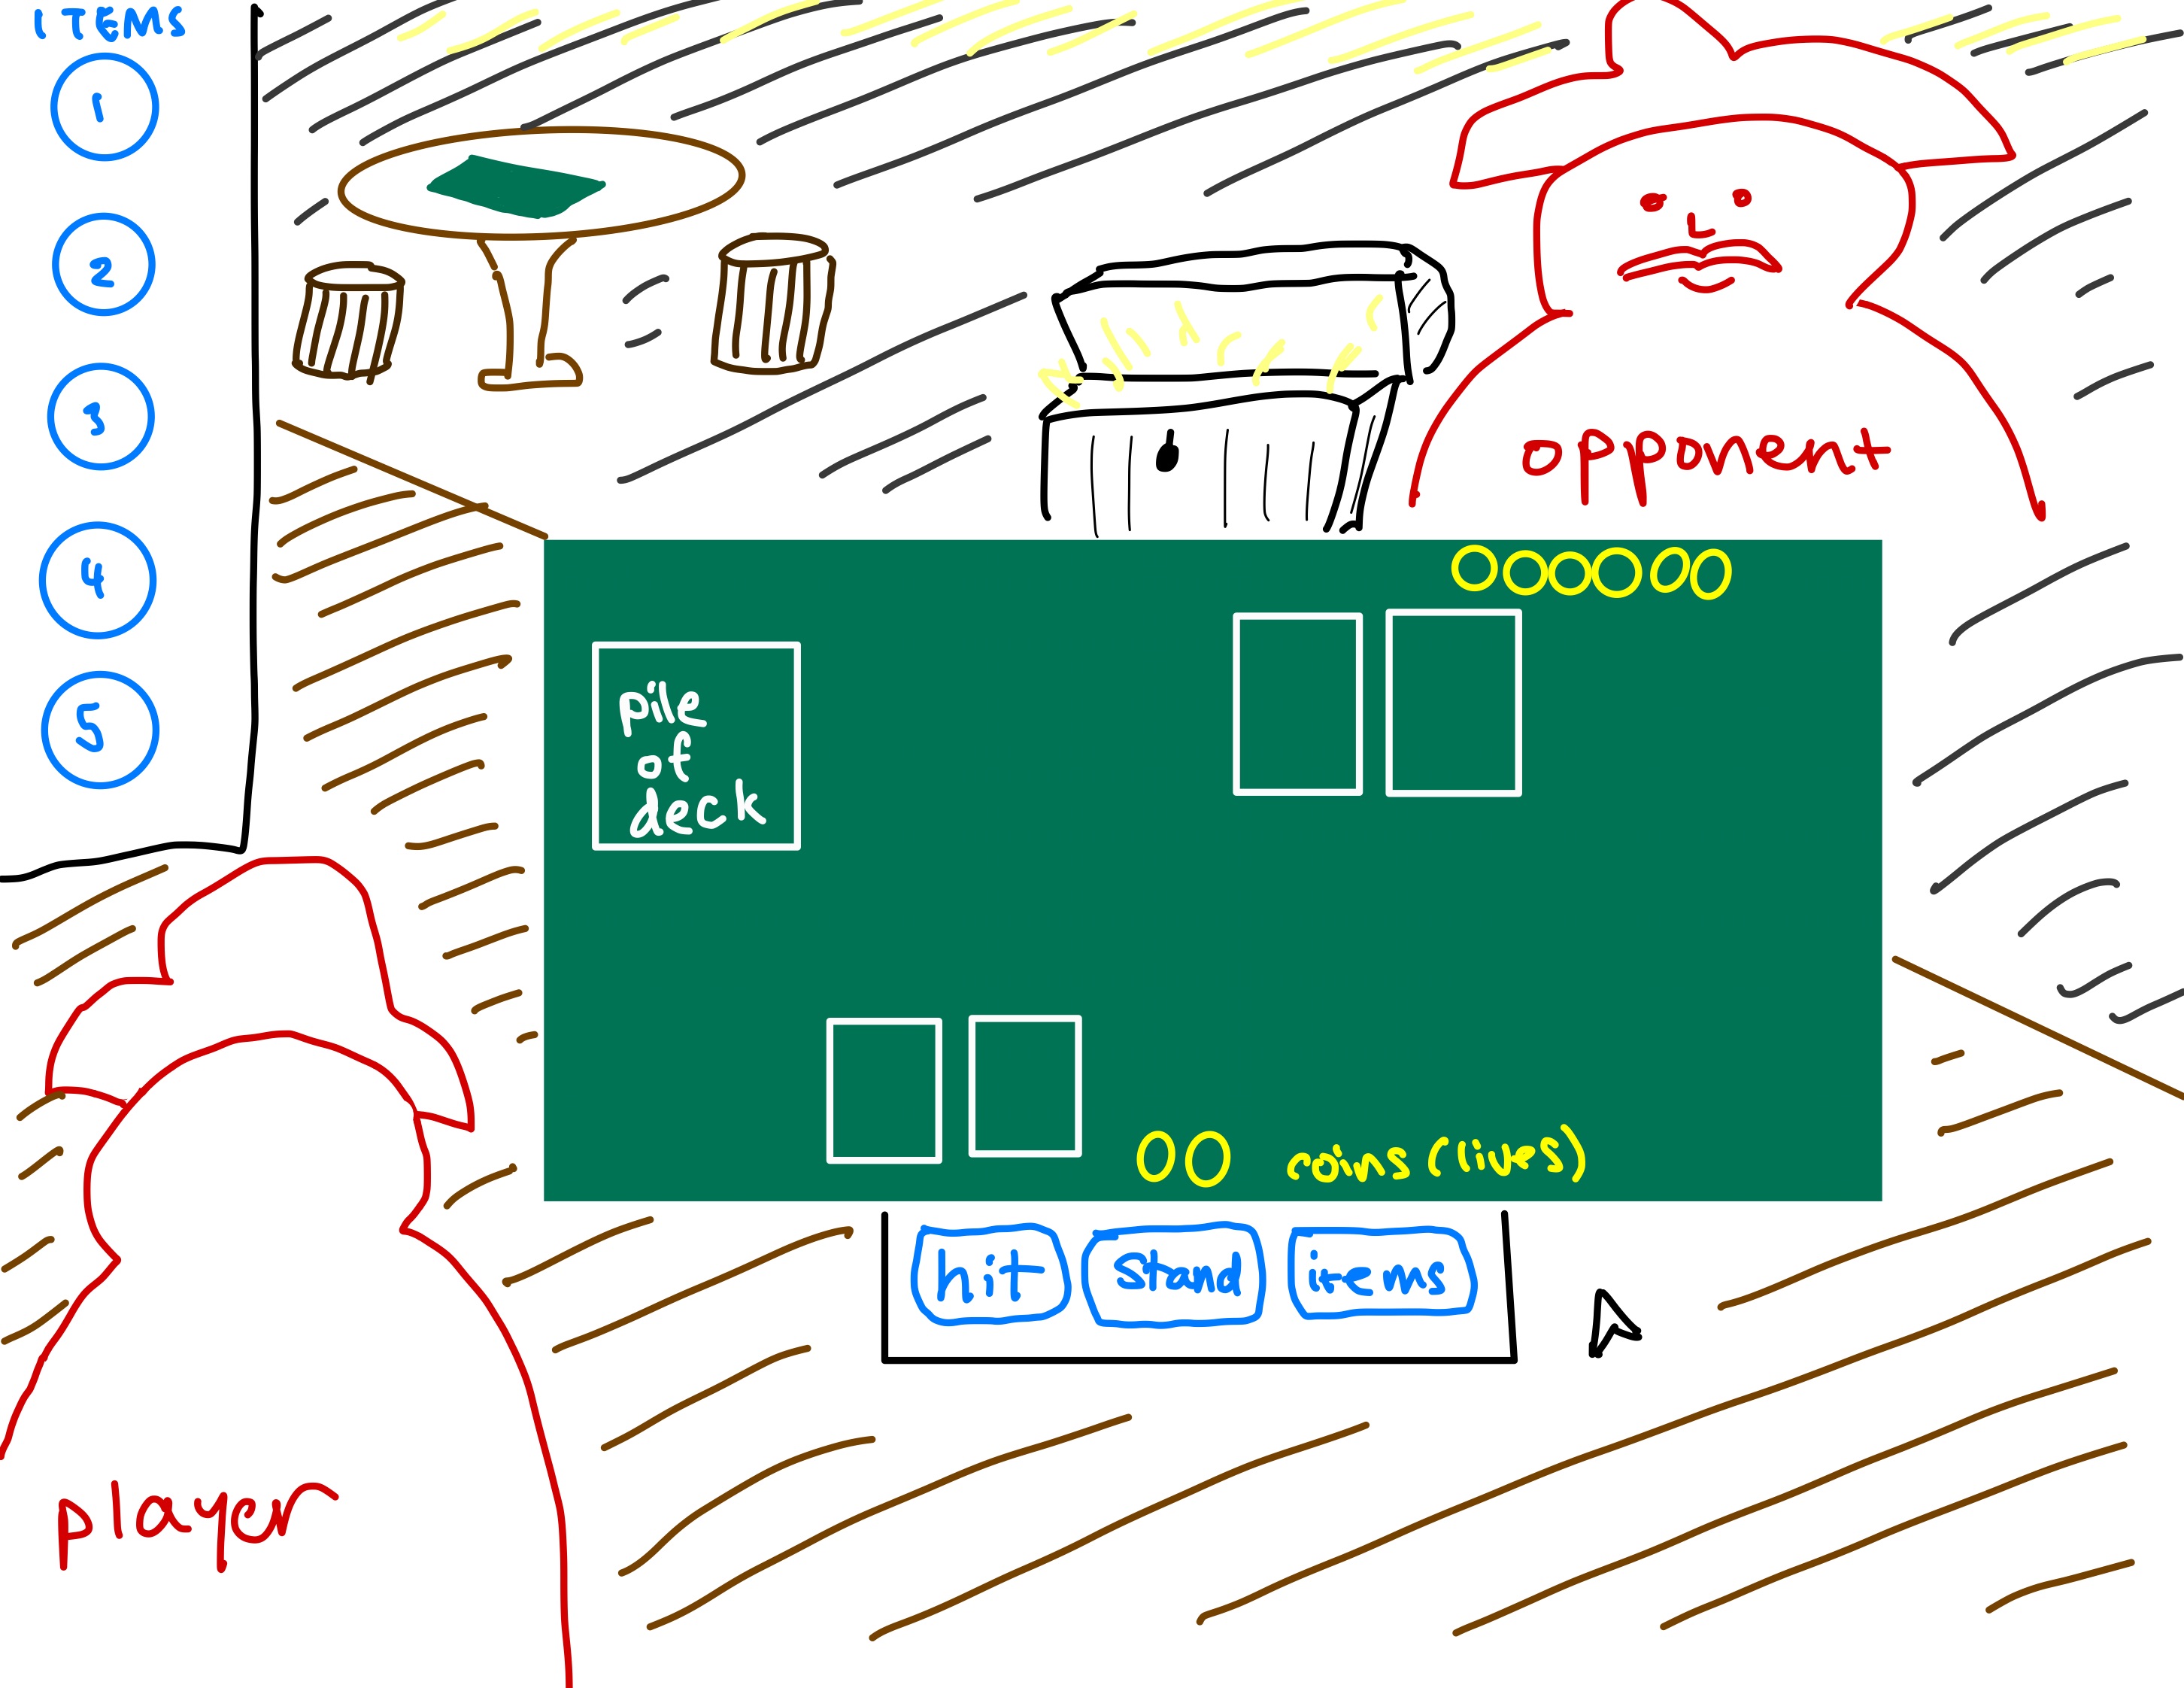 ITEMS
1
2
3
4
5
opponent
pile
of
deck
coins (lives)
hit
stand
items
player